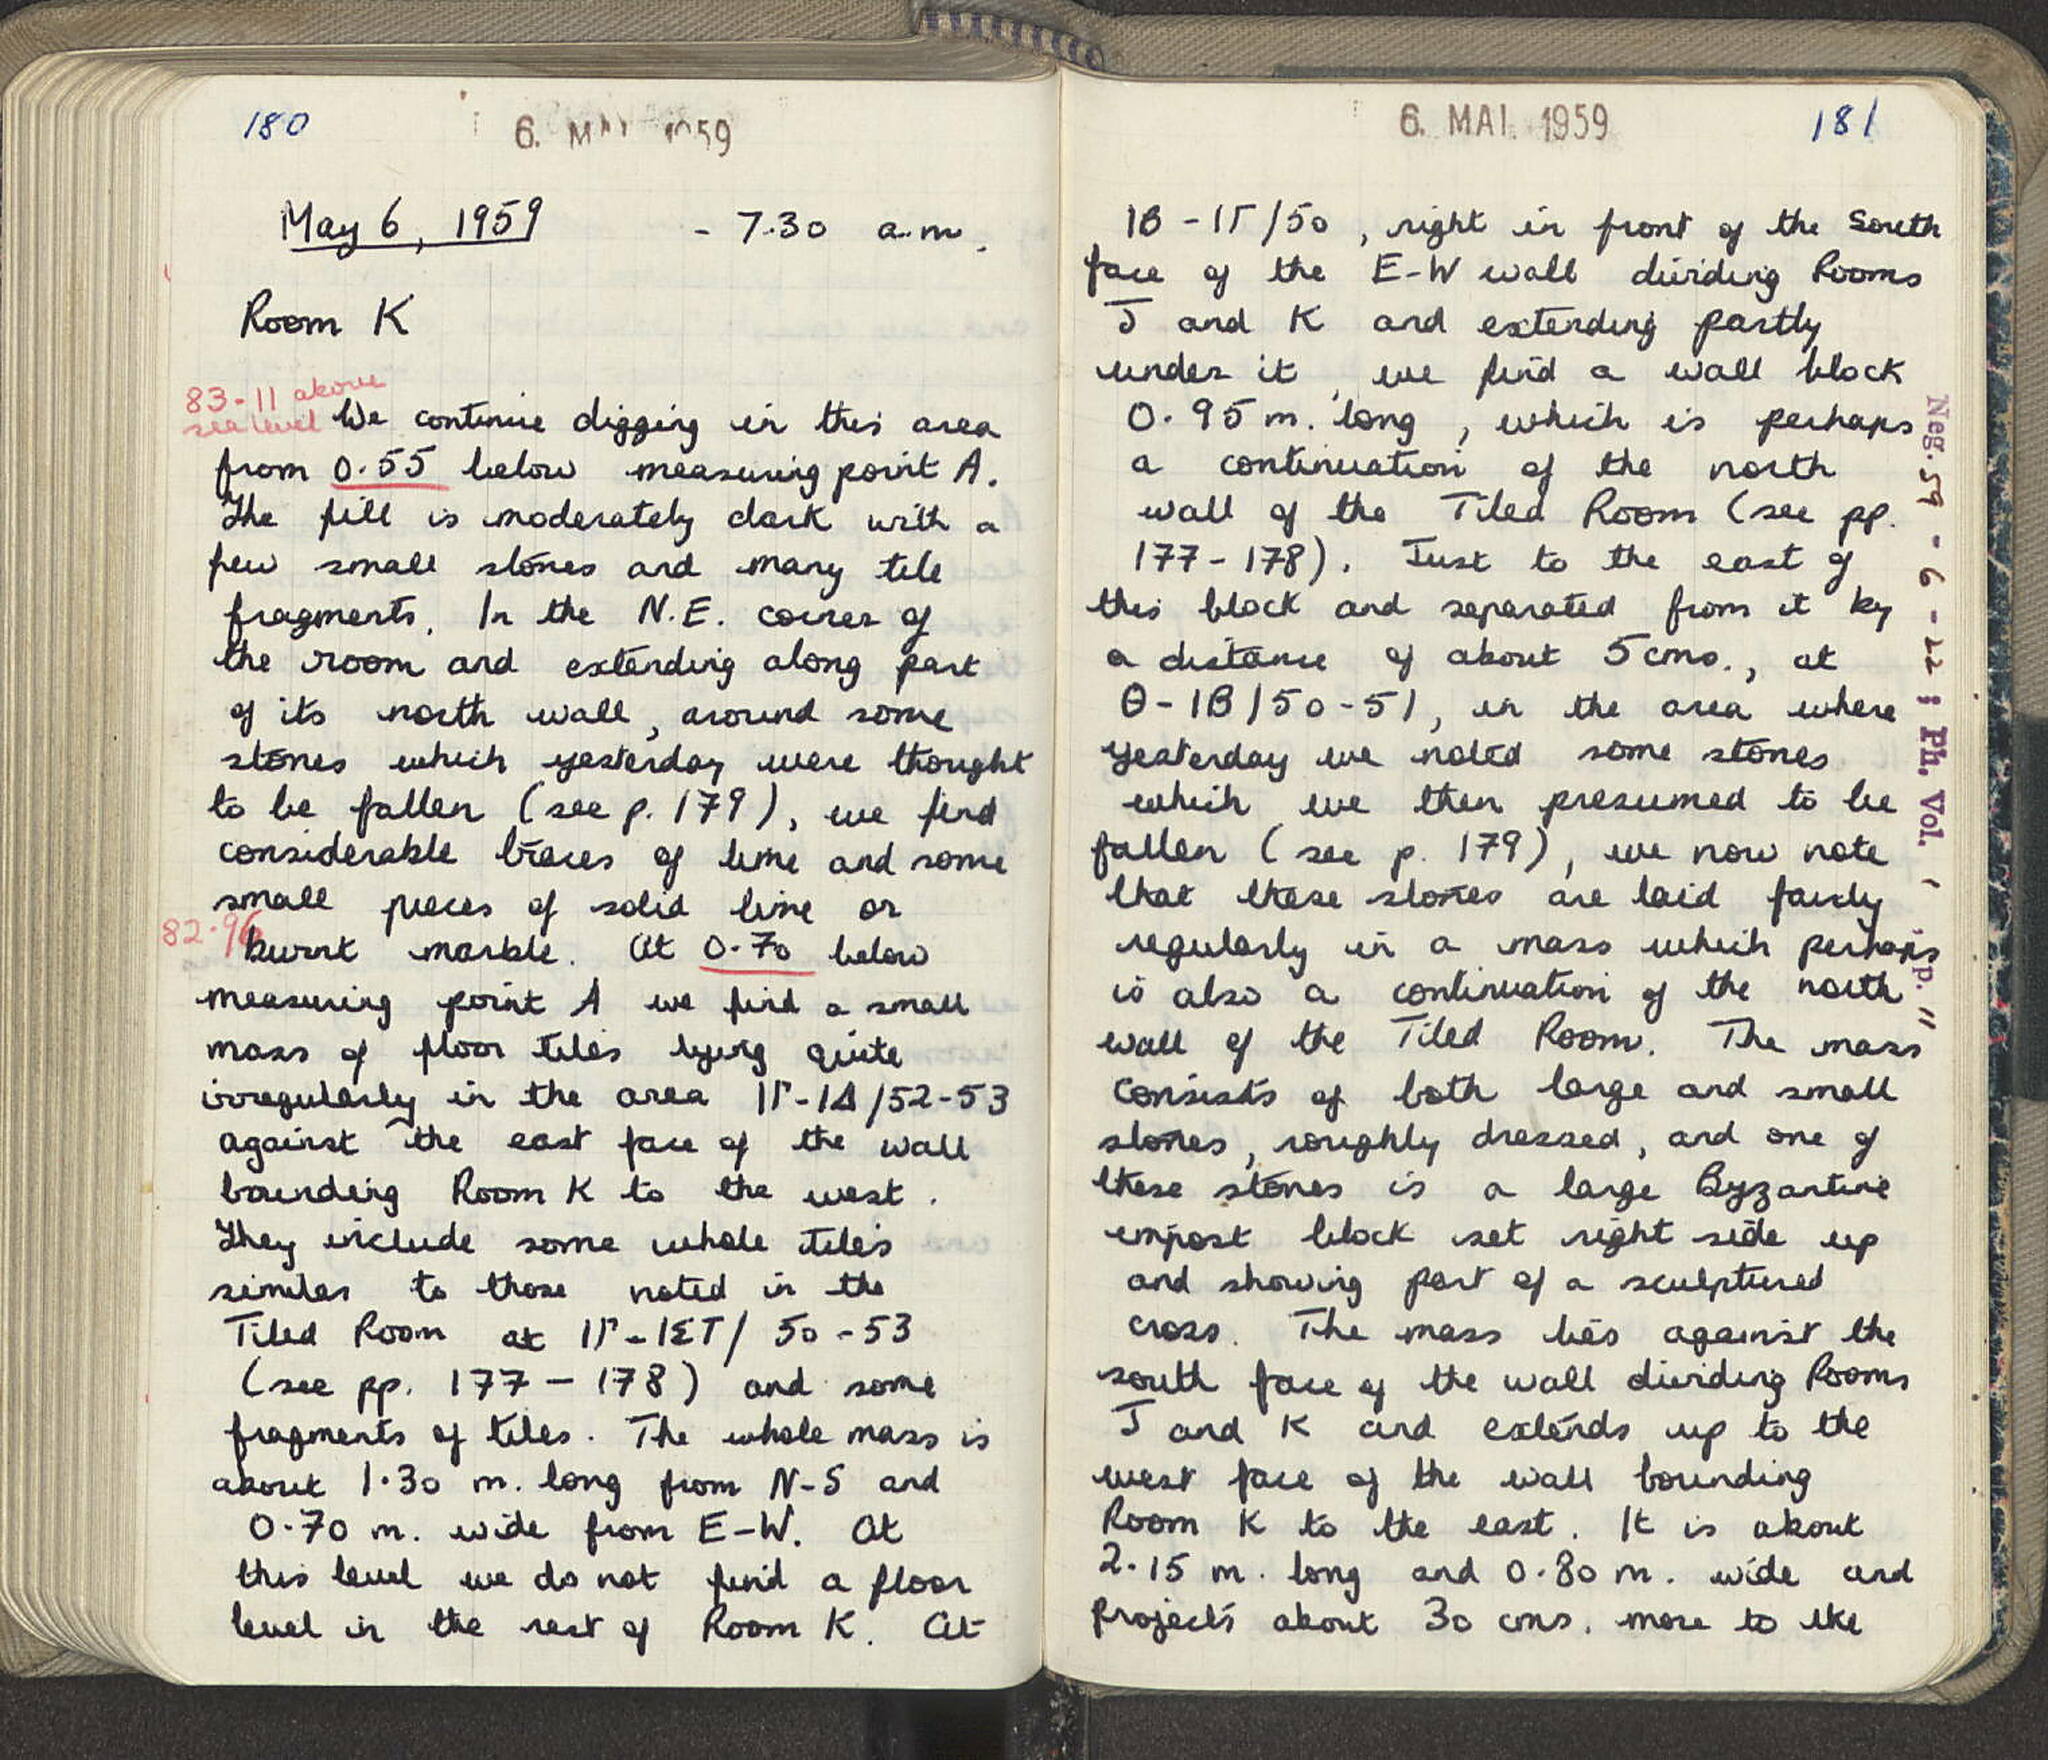 180
6. MAI 1959
May 6, 1959 - 7.30 a.m.
Room K
83.11 above
sea level We continue digging in this area
from 0.55 below measuring point A.
The fill is moderately dark with a
few small stones and many tile
fragments. In the N.E. corner of
the room and extending along part
of its north wall, around some
stones which yesterday were thought
to be fallen (see p. 179), we find
considerable traces of lime and some
small pieces of solid lime or
82.96 burnt marble. At 0.70 below
measuring point A we find a small
mass of floor tiles lying quite
irregularly in the area ΙΓ-ΙΔ/52-53
against the east face of the wall
bounding Room K to the west.
They include some whole tiles
similar to those noted in the
Tiled Room at ΙΓ-ΙΣΤ/50-53
(see pp. 177-178) and some
fragments of tiles. The whole mass is
about 1.30 m. long from N-S and
0.70 m. wide from E-W. At
this level we do not find a floor
level in the rest of Room K. At
6. MAI. 1959
181
ΙΒ-ΙΓ/50, right in front of the south
face of the E-W wall dividing Rooms
J and K and extending partly
under it, we find a wall block
0.95 m. long, which is perhaps
a continuation of the north
wall of the Tiled Room (see pp.
177-178). Just to the east of
this block and separated from it by
a distance of about 5 cms., at
Θ-ΙΒ/50-51, in the area where
yesterday we noted some stones
which we then presumed to be
fallen (see p. 179), we now note
that these stones are laid fairly
regularly in a mass which perhaps
is also a continuation of the north
wall of the Tiled Room. The mass
consists of both large and small
stones, roughly dressed, and one of
these stones is a large Byzantine
impost block set right side up
and showing part of a sculptured
cross. The mass lies against the
south face of the wall dividing Rooms
J and K and extends up to the
west face of the wall bounding
Room K to the east. It is about
2.15 m. long and 0.80 m. wide and
projects about 30 cms. more to the
Neg. 59-6-22; Ph. Vol. I p. 11